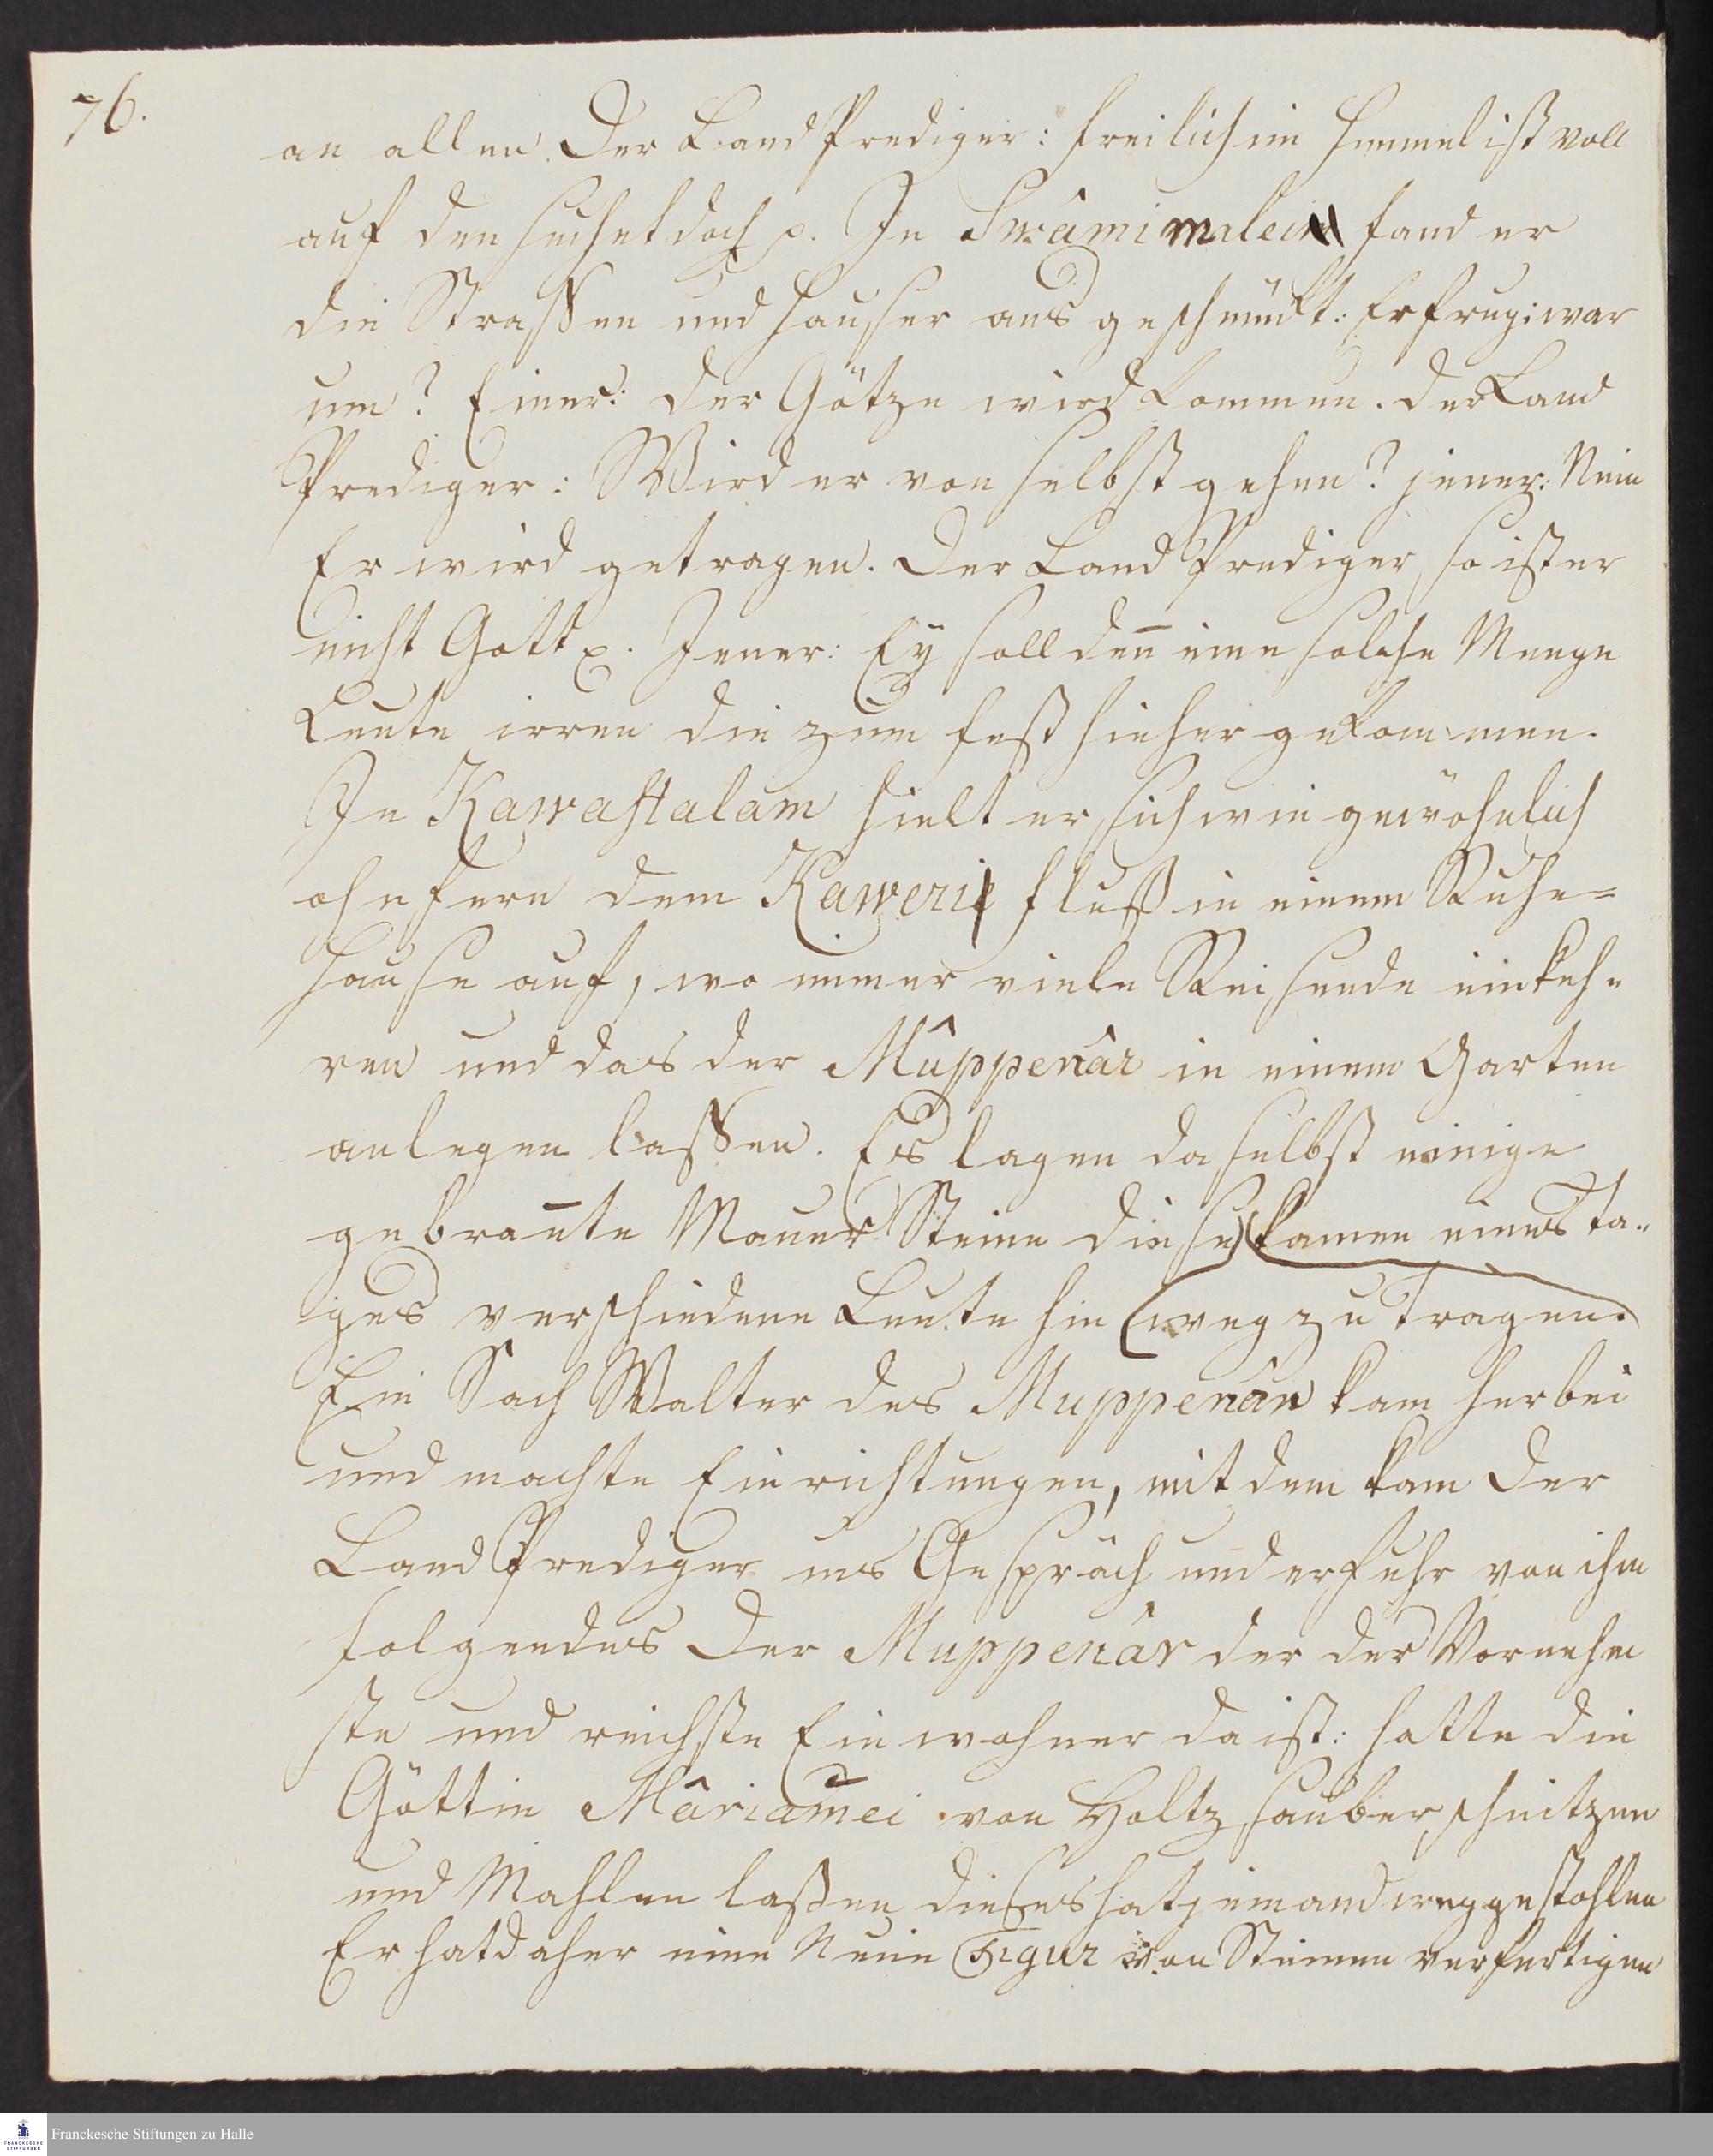 76.
an allen. Der Land Prediger: freilich im Himmel ist voll
auf den suchet doch p. In Swâmimalei fand er
die Straßen und Häuser aus geschmückt: Er frug: war
um? Einer: der Götze wird kommen. der Land
Prediger: Wird er von selbst gehen? jener: Nein
Er wird getragen. Der Land Prediger, so ist er
nicht Gott p. Jener: Ey soll deñ eine solche Menge
Leute irren die zum fest hieher gekommen.
In Kawastalam hielt er sich wie gewöhnlich
ohnfern dem Kaweri fluß in einem Ruhe=
Hause auf, wo immer viele Reisende einkeh=
ren und das der Mûppenâr in einem Garten
anlegen laßen. Es lagen daselbst einige
gebrañte Mauer Steine diese kamen eines Ta=
ges verschiedene Leute hin wegzutragen.
Ein Sach Walter des Muppenân kam herbei
und machte Einrichtungen, mit dem kam der
Land Prediger ins Gespräch und erfuhr von ihm
folgendes Der Muppenâr der der Vornehm
ste und reichste Einwohner da ist: hatte die
Göttin Mâriam̃ei von Holtz sauber schnitzen
und Mahlen laßen dieses hat jemand weggestohlen
Er hat daher eine Neue Figur von Steinen verfertigen
Franckesche Stiftungen zu Halle
FRANCKESCHE
STIFTUNGEN